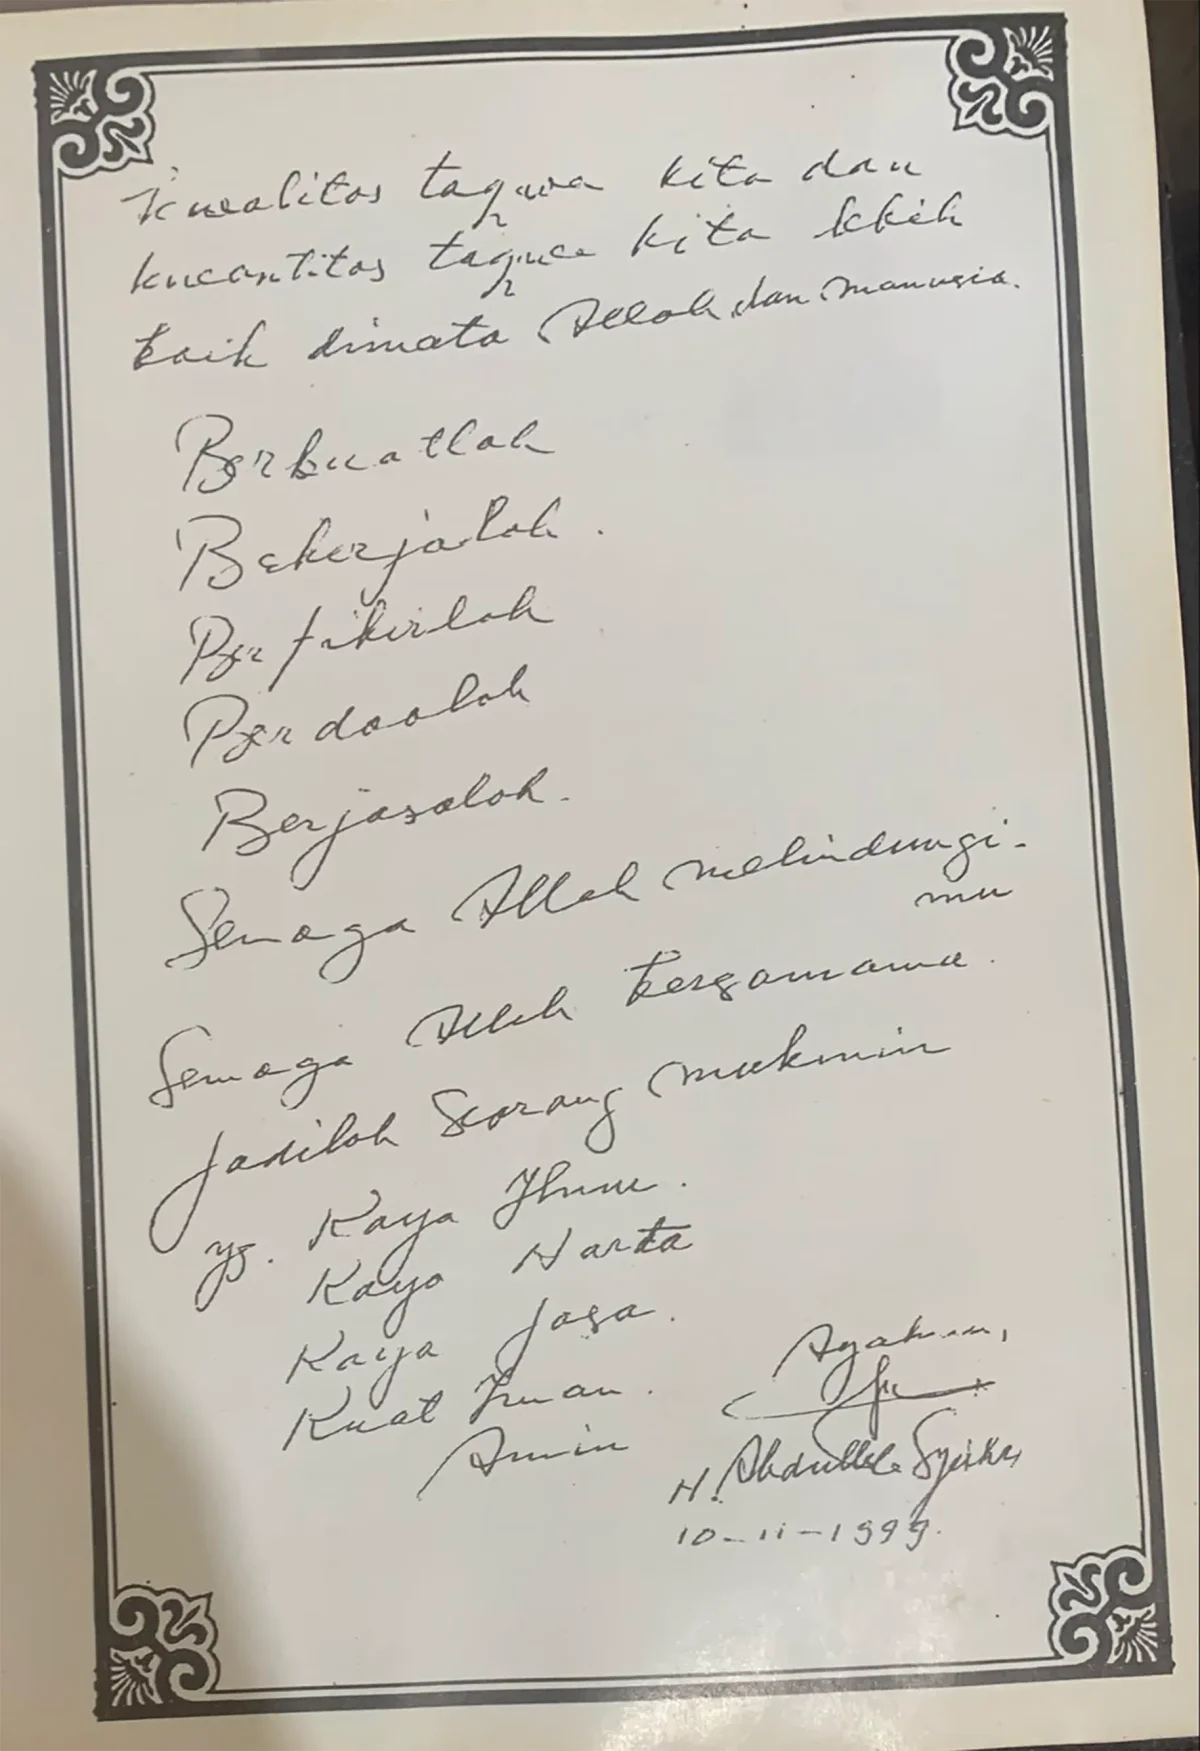 Kwalitas taqwa kita dan
kwantitas taqwa kita lebih
baik dimata Allah dan manusia.
Berbuatlah
Bekerjalah.
Berfikirlah
Berdoalah
Berjasalah.
Semoga Allah melindungi-
mu
Semoga Allah bersamamu.
Jadilah seorang mukmin
yg. Kaya Ilmu.
Kaya Harta
Kaya Jasa.
Kuat Iman.
Amin
Ayahmu,
H. Abdullah Syukri
10-11-1999.